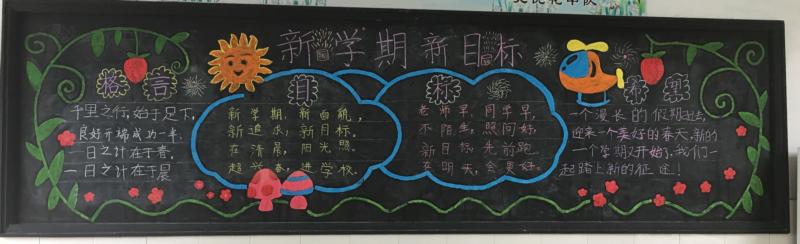 新学期新目标
格言
千里之行,始于足下,
良好开端成功一半,
一日之计在于春,
一日之计在于晨
目
新学期,新面貌,
新追求,新目标。
在清晨,阳光照。
进学校.
标
老师早,同学早,
不陌生,照问好,
新目标,先前跑,
在明天,会更好。
一个漫长的假期过去,
迎来一个美好的春天,新的
一个学期又开始了,我们一
起踏上新的征途!